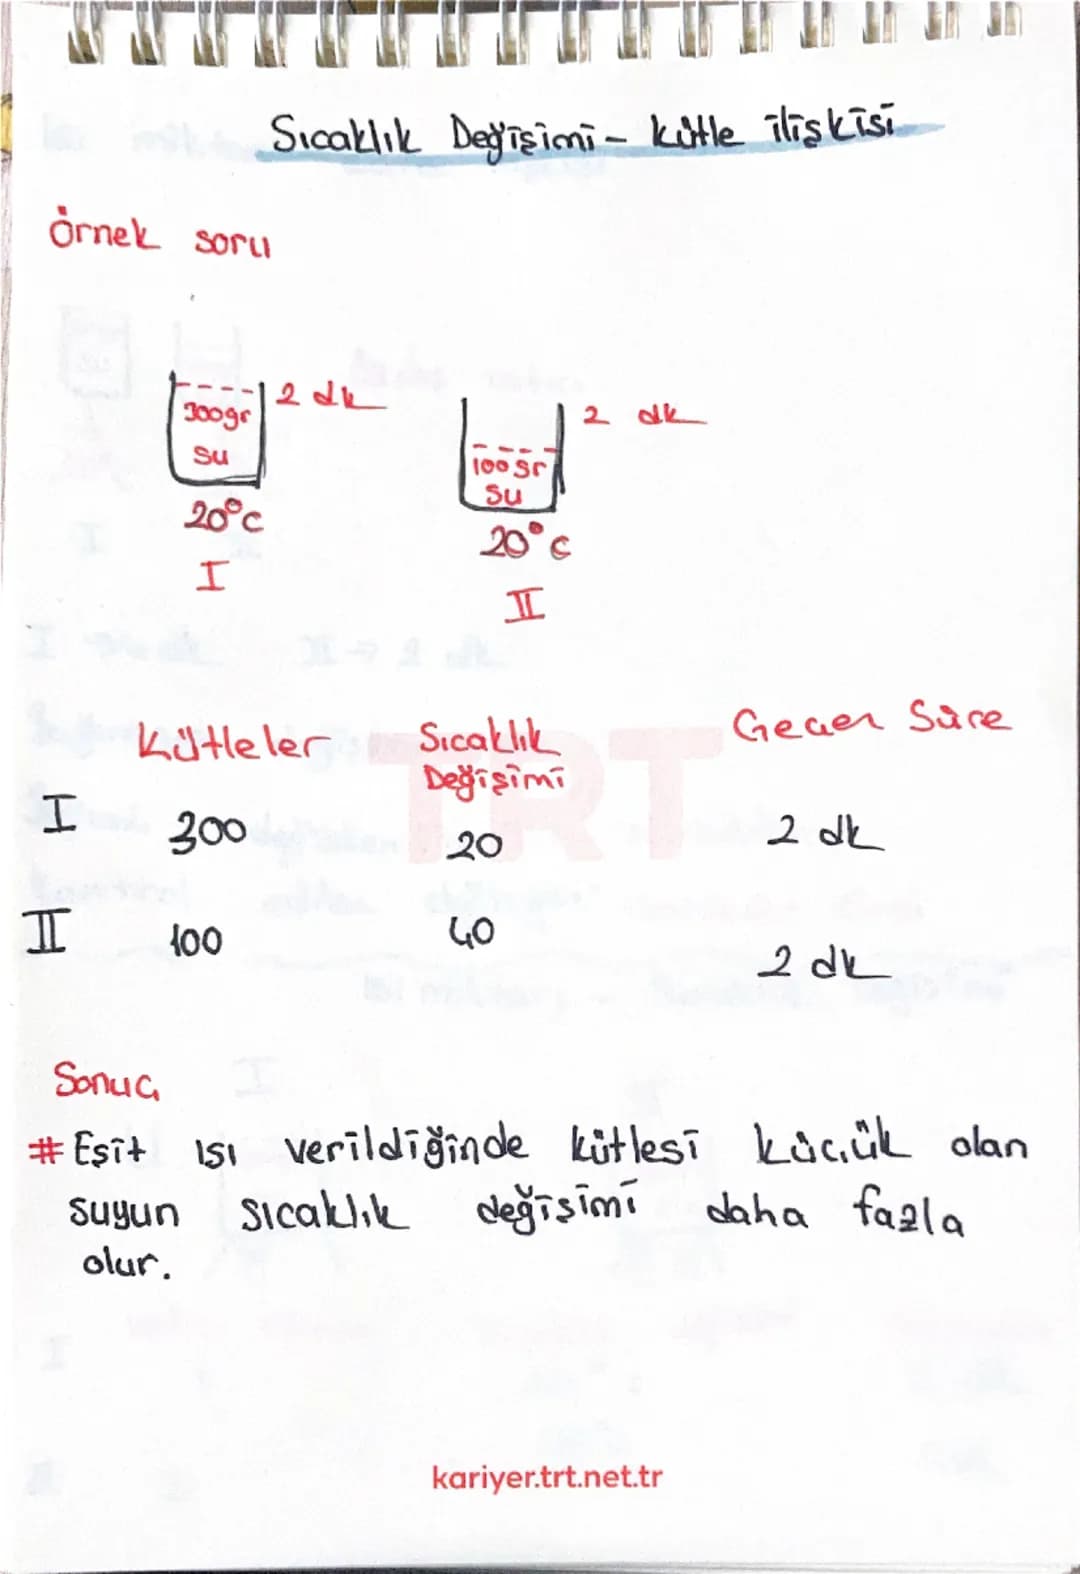 Sıcaklık Değişimi - kütle ilişkisi
Örnek soru
300gr
su
2 dk
20°C
I
100gr
su
2 dk
20°C
II
Kütleler Sıcaklık Değişimi Gecen Süre
I 300 20 2 dk
II 100 40 2 dk
TRT
Sonuç
# Eşit ısı verildiğinde kütlesi küçük olan
suyun sıcaklık değişimi daha fazla
olur.
kariyer.trt.net.tr